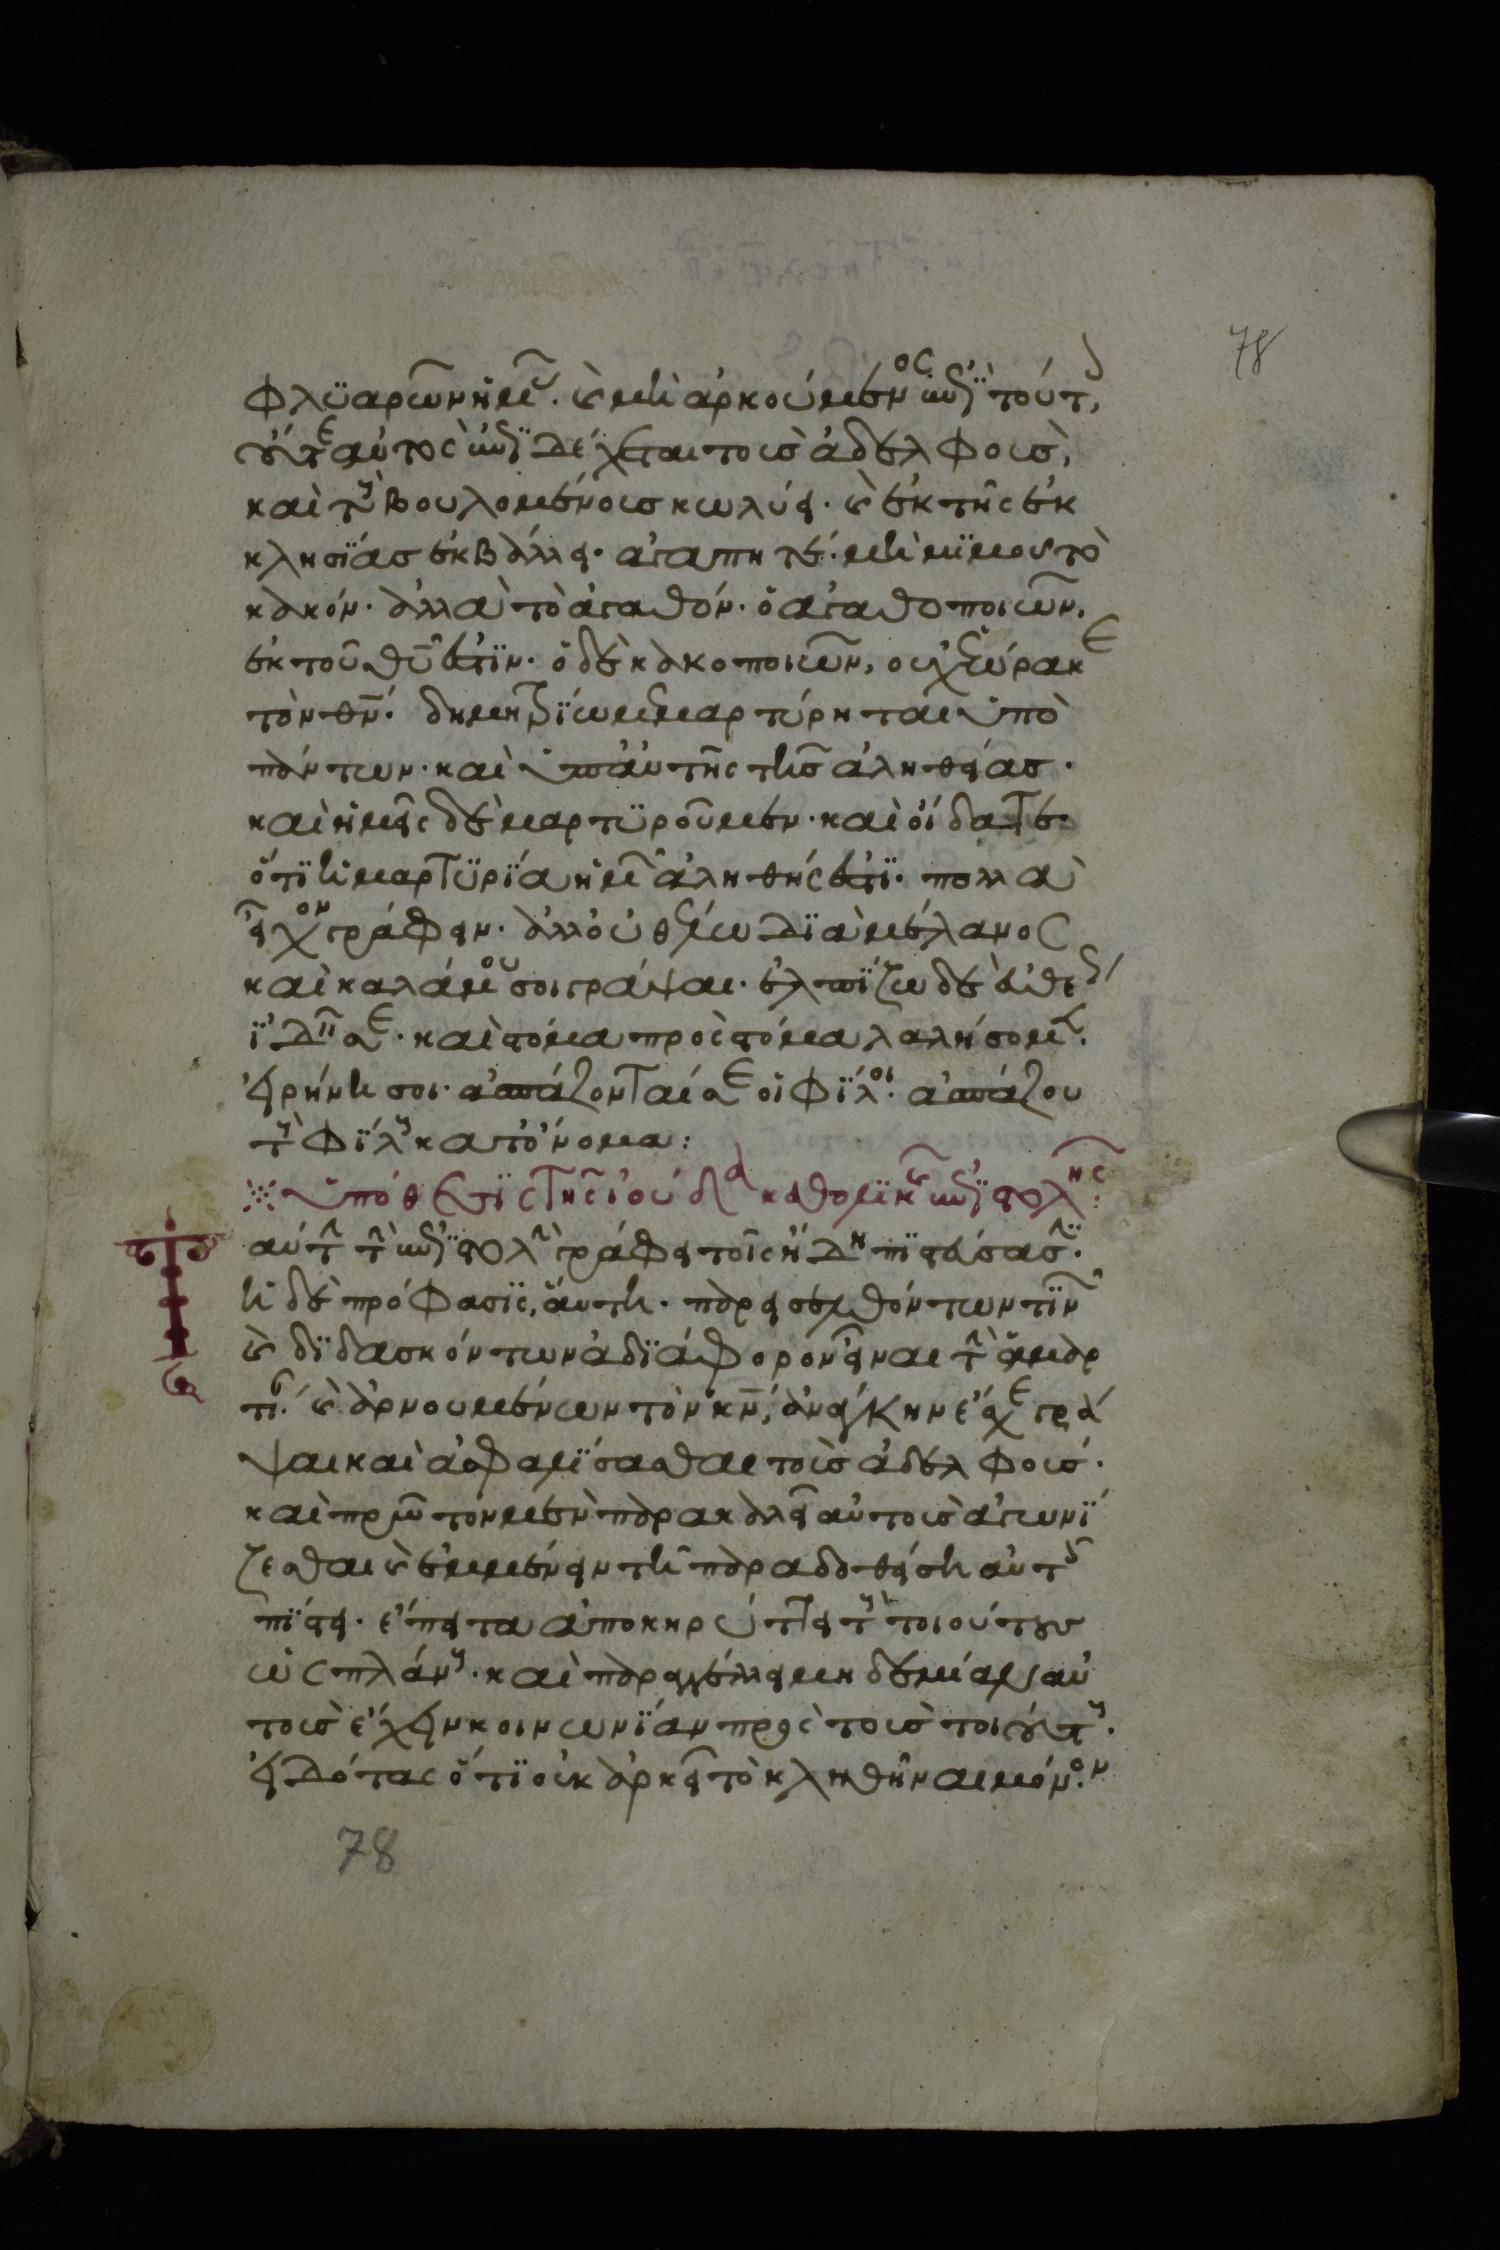 78
φλυαρῶν ἡμᾶς. καὶ μὴ ἀρκούμενος ἐπὶ τούτοις,
οὔτε αὐτὸς ἐπιδέχεται τοὺς ἀδελφοὺς,
καὶ τοὺς βουλομένους κωλύει. καὶ ἐκ τῆς ἐκ
κλησίας ἐκβάλλει. ἀγαπητέ. μὴ μιμοῦ τὸ
κακόν. ἀλλὰ τὸ ἀγαθόν. ὁ ἀγαθοποιῶν,
ἐκ τοῦ θυ ἐστίν. ὁ δὲ κακοποιῶν, οὐχ ἑώρακε
τὸν θν. δημητρίω μεμαρτύρηται ὑπὸ
πάντων. καὶ ὑπ' αὐτῆς τῆς ἀληθείας.
καὶ ἡμεῖς δὲ μαρτυροῦμεν. καὶ οἴδατε
ὅτι ἡ μαρτυρία ἡμῶν ἀληθής ἐστι. πολλὰ
εἶχον γράφειν. ἀλλ' οὐ θέλω διὰ μέλανος
καὶ καλάμου σοι γράψαι. ἐλπίζω δὲ εὐθέως
ἰδεῖν σε. καὶ στόμα πρὸς στόμα λαλήσομεν.
εἰρήνη σοι. ἀσπάζονταί σε οἱ φίλοι. ἀσπάζου
τοὺς φίλους κατ' ὄνομα:
ὑπόθεσις τῆς ἰούδα καθολικῆς ἐπιστολῆς:
Ταύτην τὴν ἐπιστολὴν γράφει τοῖς ἤδη πιστεύσασιν.
ἡ δὲ πρόφασις, αὕτη. παρεισελθόντων τινῶν
καὶ διδασκόντων ἀδιάφορον εἶναι τὴν ἁμαρ
τίαν. καὶ ἀρνουμένων τὸν κν, ἀνάγκην ἔσχε γρά
ψαι καὶ ἀσφαλίσασθαι τοὺς ἀδελφούς.
καὶ πρῶτον μὲν παρακαλεῖ αὐτοὺς ἀγωνί
ζεσθαι καὶ ἐμμένειν τῇ παραδοθείσῃ αὐτοῖς
πίστει. ἔπειτα ἀποκηρύττει τοὺς τοιούτους
ὡς πλάνους. καὶ παραγγέλλει μηδεμίαν αὐ
τοὺς ἔχειν κοινωνίαν πρὸς τοὺς τοιούτους.
εἰδότας ὅτι οὐκ ἀρκεῖ τὸ κληθῆναι μόνον.
78